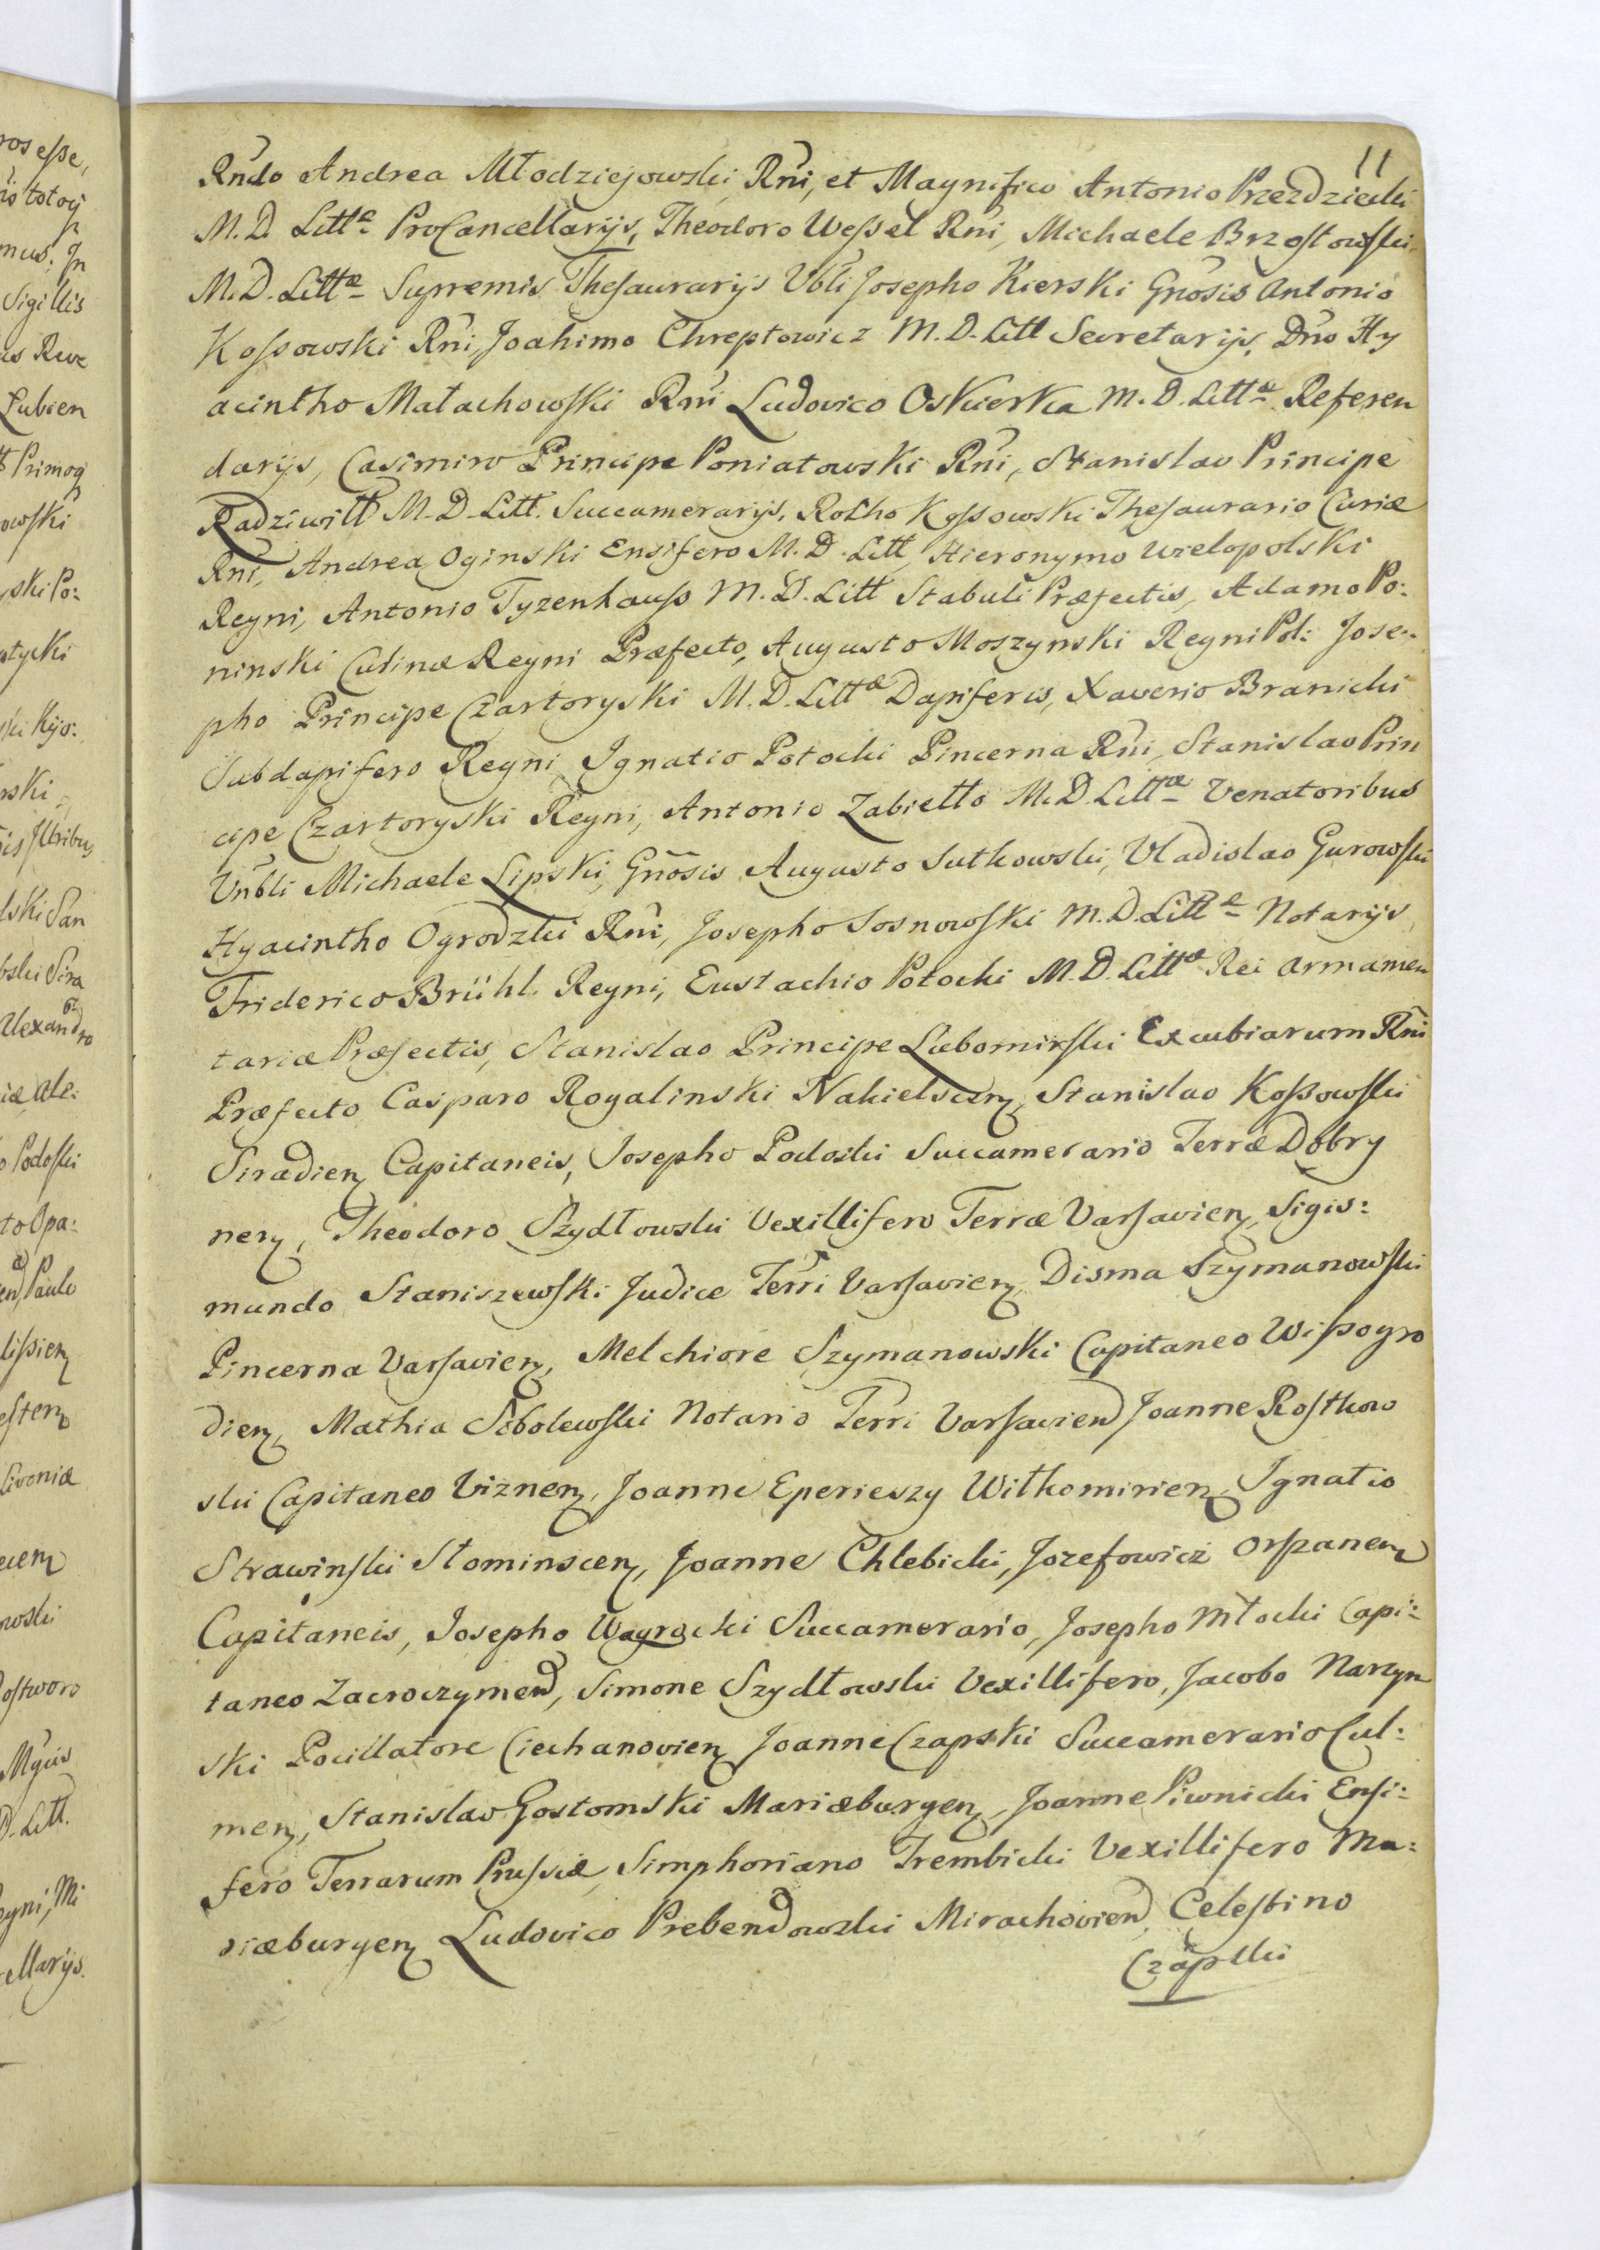 11
Rndo Andrea Młodziejowski Rni, et Magnifico Antonio Przezdziecki
M. D. Littæ ProCancellarijs, Theodoro Weſsel Rni, Michaele Brzoſtowſki
M. D. Littæ Supremis Theſaurarijs Vbli Josepho Kierski Gnosis Antonio
Koſsowski Rni, Joahimo Chreptowicz M. D. Litt Secretarijs, Dno Hy
acintho Małachowſki Rni Ludovico Oskierka M. D. Littæ Referen
darijs, Casimiro Principe Poniatowski Rni, Stanislao Principe
Radziwiłł M. D. Litt. Succamerarijs, Rocho Koſsowski Theſaurario Curiæ
Rni, Andrea Oginski Ensifero M. D. Litt, Hieronymo Wielopolski
Regni, Antonio Tyzenhauſs M. D. Litt Stabuli Præfectis, Adamo Po:
ninski Culinæ Regni Præfecto, Augusto Moszynski Regni Pol: Jose:
pho Principe Czartoryski M. D. Littæ Dapiferis, Xaverio Branicki
Subdapifero Regni, Ignatio Potocki Pincerna Rni, Stanislao Prin
cipe Czartoryski Regni, Antonio Zabiełło M. D. Littæ Venatoribus
Vnbli Michaele Lipski, Gnosis Augusto Sutkowski, Vladislao Gurowſki
Hyacintho Ogrodzki Rni, Josepho Sosnowſki M. D. Littæ Notarijs,
Friderico Brühl Regni, Eustachio Potocki M. D. Littæ Rei armamen
tariæ Præfectis, Stanislao Principe Lubomirſki Excubiarum Rni
Præfecto Casparo Rogalinski Nakielscen, Stanislao Koſsowſki
Siradien Capitaneis, Josepho Podoski Succamerario Terræ Dobry
nen, Theodoro Szydłowski Vexillifero Terræ Varſavien, Sigis:
mundo Staniszewſki Judice Terri Varſavien, Disma Szymanowſki
Pincerna Varſavien, Melchiore Szymanowski Capitaneo Wiſsogro
dien, Mathia Sobolewſki Notario Terri Varſavien Joanne Roſtkow
ski Capitaneo Viznen, Joanne Eperieszy Wiłkomirien, Ignatio
Strawinſki Słominscen, Joanne Chlebicki, Jozefowicz Orſzanen
Capitaneis, Josepho Wągrocki Succamerario, Josepho Młocki Capi:
taneo Zacroczymen, Simone Szydłowski Vexillifero, Jacobo Narzyn
ski Pocillatore Ciechanovien Joanne Czapski Succamerario Cul:
men, Stanislao Gostomski Mariæburgen, Joanne Piwnicki Enſi:
fero Terrarum Pruſsiæ, Simphoriano Trembicki Vexillifero Ma:
riæburgen Ludovico Prebendowski Mirachovien, Celeſtino
Czapski